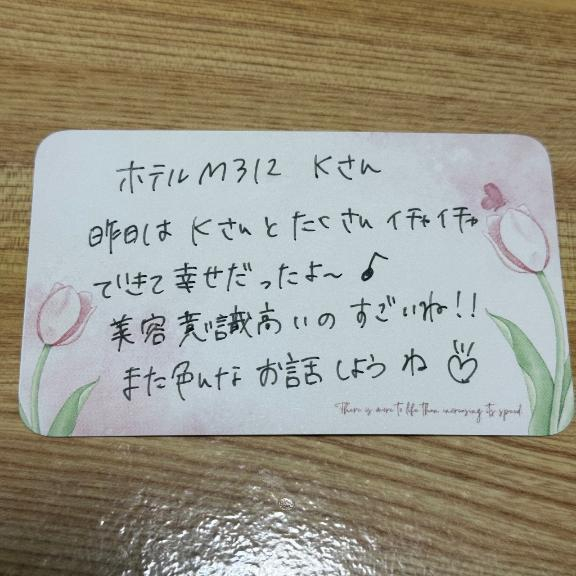 ホテルM312 Kさん
昨日は Kさんと たくさん イチャイチャ
できて 幸せだったよ〜♪
美容意識高いの すごいね!!
また色んな お話 しようね♡
There is more to life than increasing its speed